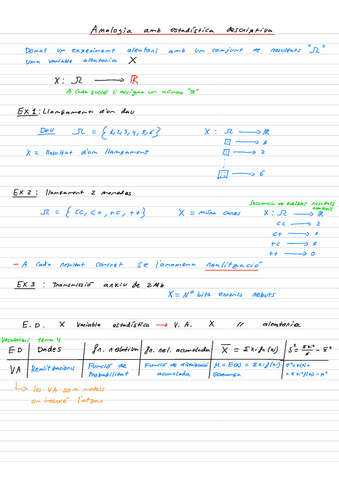 Analogia amb estadística descriptiva
Donat un experiment aleatori amb un conjunt de resultats "Ω"
una variable aleatoria X
X: Ω → ℝ
A cada succés s'assigna un número "x"
EX 1: Llançament d'un dau
Dau Ω = {1,2,3,4,5,6} X: Ω → ℝ
X = Resultat d'un llançament → 1
→ 2
⋮
→ 6
EX 2: llançament 2 monedes
Seqüencia de
Ω = {CC, C+, +C, ++} X = nº cares X: Ω → ℝ
CC → 2
C+ → 1
+C → 1
++ → 0
- A cada resultat concret se l'anomena realització
EX 3: Transmissió arxiu de 2Mb
X = Nº bits erronis rebuts
E.D. X variable estadística → V.A. X // aleatoria
Vocabulari tema 4
E.D Dades fr. relativa fr. rel. acumulada X̄ = Σxi fr(xi) S² = Σxi²/n - x̄²
VA Realitzacions Funció de Probabilitat Funció de distribució acumulada μ = E(X) = Σxi f(xi) Esperança σ² = V(X) = Σxi² f(xi) - μ²
↳ les VA són models